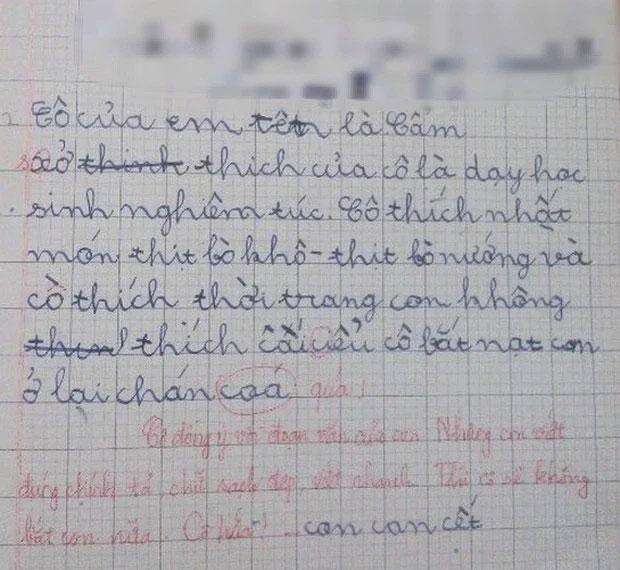 Cô của em tên là Cẩm
sở thinh thích của cô là dạy học
sinh nghiêm túc. Cô thích nhất
món thịt bò khô - thịt bò nướng và
cô thích thời trang con không
thích cái iểu cô bắt nạt con
ở lại chán coá quá!
Cô đồng ý với đoạn văn của con. Nhưng con viết
đúng chính tả, chữ sạch đẹp, viết nhanh. Thì cô sẽ không
bắt con nữa. Cô hứa! con can cết